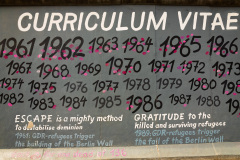 CURRICULUM VITAE
1961 1962 1963 1964 1965 1966
1967 1968 1969 1970 1971 1972 1973
1974 1975 1976 1977 1978 1979 1980
1982 1983 1984 1985 1986 1987 1988
ESCAPE is a mighty method GRATITUDE to the
to destabilise dominion killed and surviving refugees
1961: GDR-refugees trigger 1989: GDR-refugees trigger
the building of the Berlin Wall the fall of the Berlin Wall